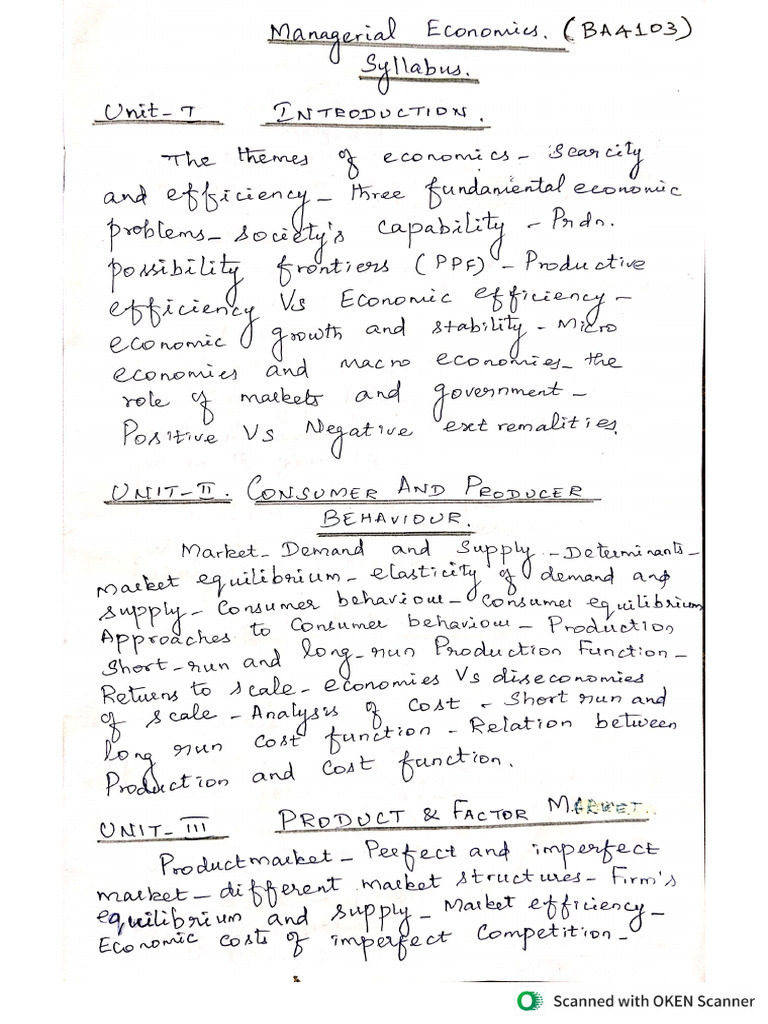 Managerial Economics. (BA4103)
Syllabus.
Unit-I INTRODUCTION.
The themes of economics - Scarcity
and efficiency - three fundamental economic
problems - society's capability - Prdn.
possibility frontiers (PPF) - Productive
efficiency Vs Economic efficiency -
economic growth and stability - Micro
economies and Macro economies - the
role of markets and government -
Positive Vs Negative externalities.
UNIT-II. CONSUMER AND PRODUCER
BEHAVIOUR.
Market - Demand and Supply - Determinants -
Market equilibrium - elasticity of demand and
supply - Consumer behaviour - Consumer equilibrium
Approaches to Consumer behaviour - Production
Short-run and long-run Production Function -
Returns to scale - economies Vs diseconomies
of scale - Analysis of cost - Short run and
long run cost function - Relation between
Production and cost function.
UNIT-III PRODUCT & FACTOR MARKET.
Product market - Perfect and imperfect
market - different market structures - Firm's
equilibrium and supply - Market efficiency -
Economic costs of imperfect Competition -
Scanned with OKEN Scanner